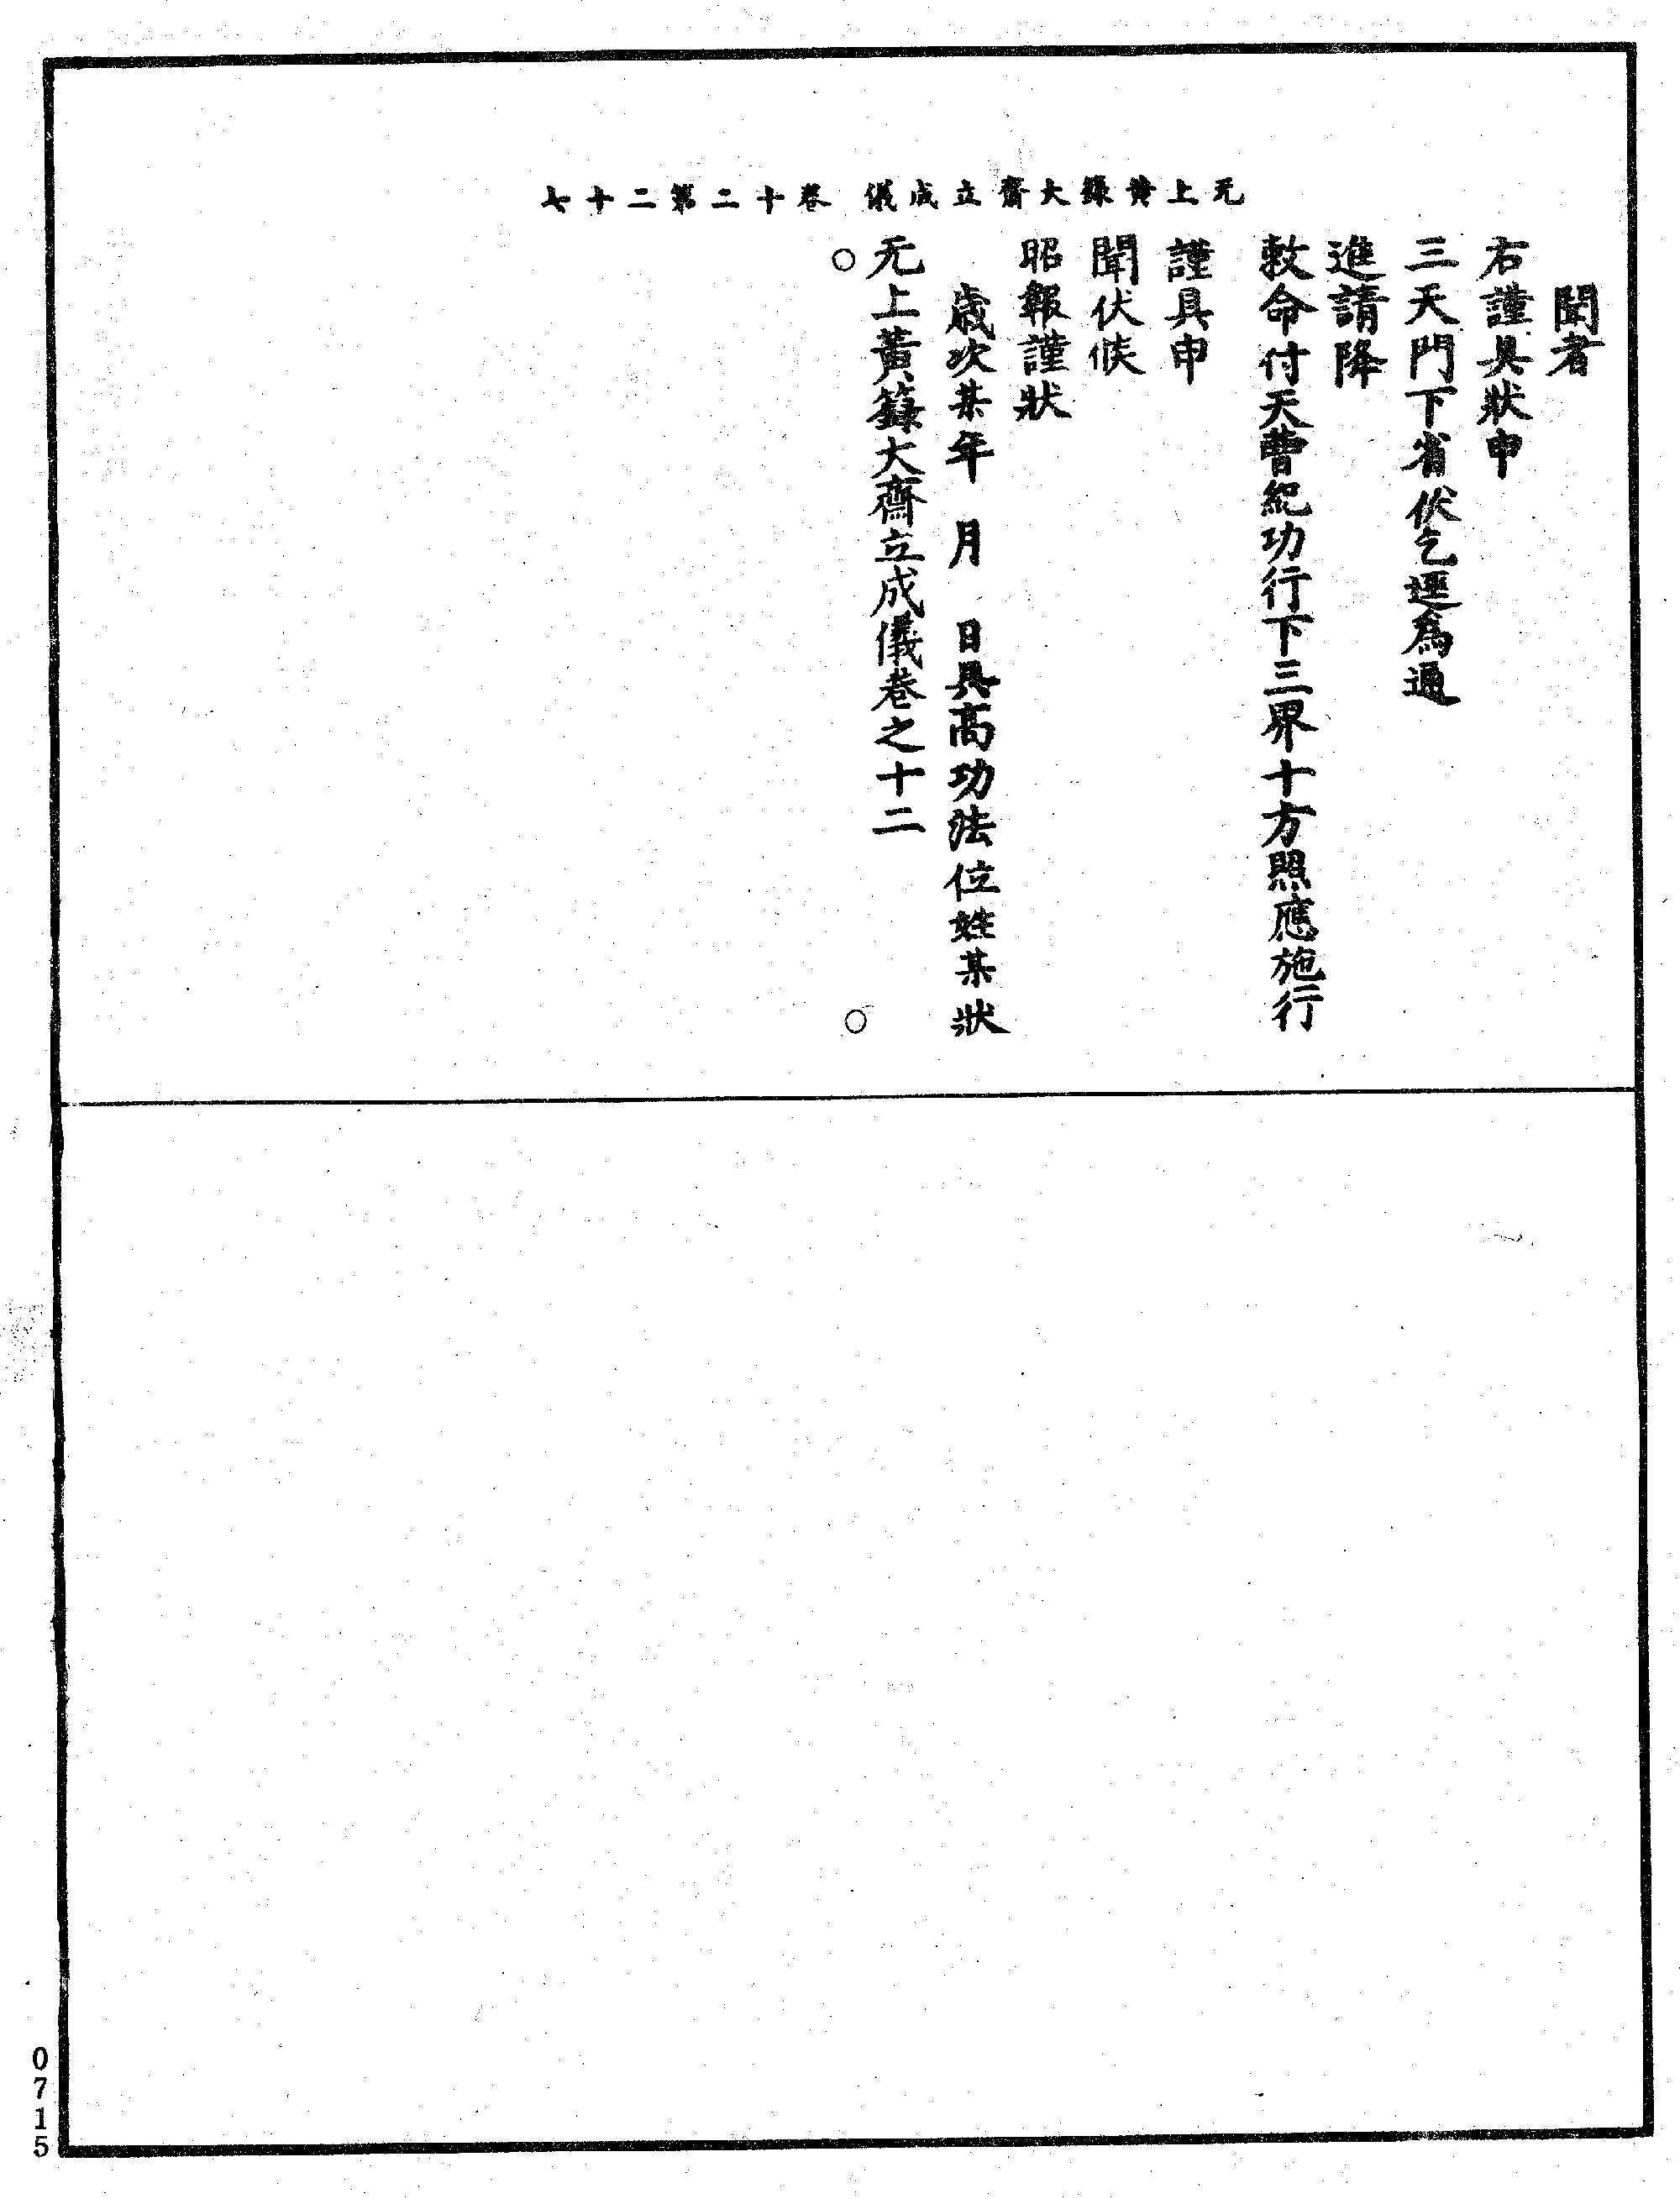 无上黃籙大齋立成儀 卷十二第二十七
聞者
右謹具狀申
三天門下省伏乞遷為通
進請降
敕命付天曹紀功行下三界十方照應施行
謹具申
聞伏候
昭報謹狀
歲次某年 月 日具高功法位姓某狀
无上黃籙大齋立成儀卷之十二
0715